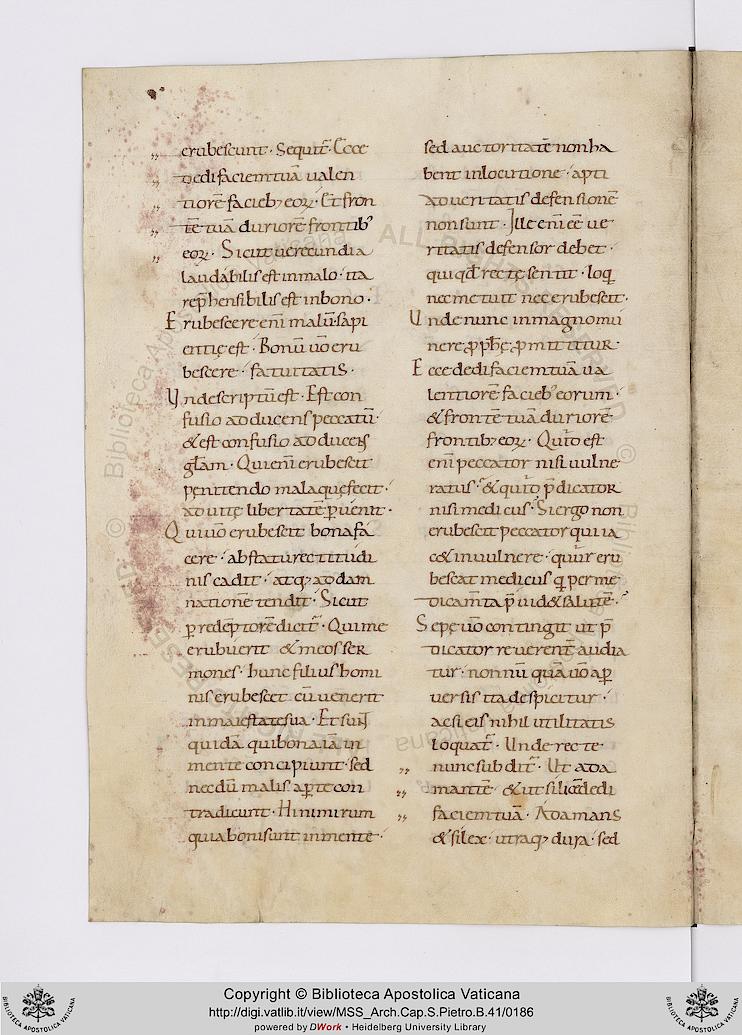 erubescunt · Sequit̄ · Ecce
dedi faciem tuā valen
tiorē facieb; eoꝝ · Et fron
tē tuā duriorē frontib᾽
eoꝝ · Sicut uerecundia
laudabilis est in malo · ita
rep̄hensibilis est in bono ·
Erubescere eni malū · sapi
entiȩ est · Bonū ūo eru
bescere · fatuitatis ·
Unde scriptū est · Est con
fusio adducens peccatū ·
& est confusio adducens
gl̄am · Qui eni erubescit
pȩnitendo mala quȩ fecit ·
ad uitȩ libertatē ꝑuenit ·
Qui ūo erubescit bona fa
cere · ab statu rectitudi
nis cadit · atq; ad dam
nationē tendit · Sicut
ꝑ redēptorē dicit̄ · Qui me
erubuerit & meos ser
mones · hunc filius homi
nis erubescet cū uenerit
in maiestate sua · Et sun̄t
quidā qui bona iā in
mente concipiunt · sed
necdū malis aꝑte con
tradicunt · Hi nimirum
quia boni sunt in mente ·
sed auctoritatē non ha
bent in locutione · apti
ad ueritatis defensionē
non sunt · Ille eni eē ue
ritatis defensor debet ·
qui qd̄ rectȩ sentit · loq̄
nec metuit nec erubescit ·
Unde nunc in magno mu
nere ꝓph̄ȩ ꝓmittitur
Ecce dedi faciem tuā ua
lentiorē facieb᾽ eorum ·
& frontē tuā duriorē
frontib; eoꝝ · Quid est
eni peccator nisi uulne
ratus · & quid p̄dicator
nisi medicus · Si ergo non
erubescit peccator qui ia
c& in uulnere · quur eru
bescat medicus q̄ per me
dicamta p̄uid& salutē ·
Sȩpȩ ūo contingit ut p̄
dicator reuerent̄ audia
tur · non nunquā ūo aꝑ
uersis ita despicitur ·
ac si eis nihil utilitatis
loquat̄ · Unde recte
nunc subdit̄ · Ut ada
mantē & ut silicē dedi
faciem tuā · Adamans
& silex · utraq; dura · sed
Copyright © Biblioteca Apostolica Vaticana
http://digi.vatlib.it/view/MSS_Arch.Cap.S.Pietro.B.41/0186
powered by DWork • Heidelberg University Library